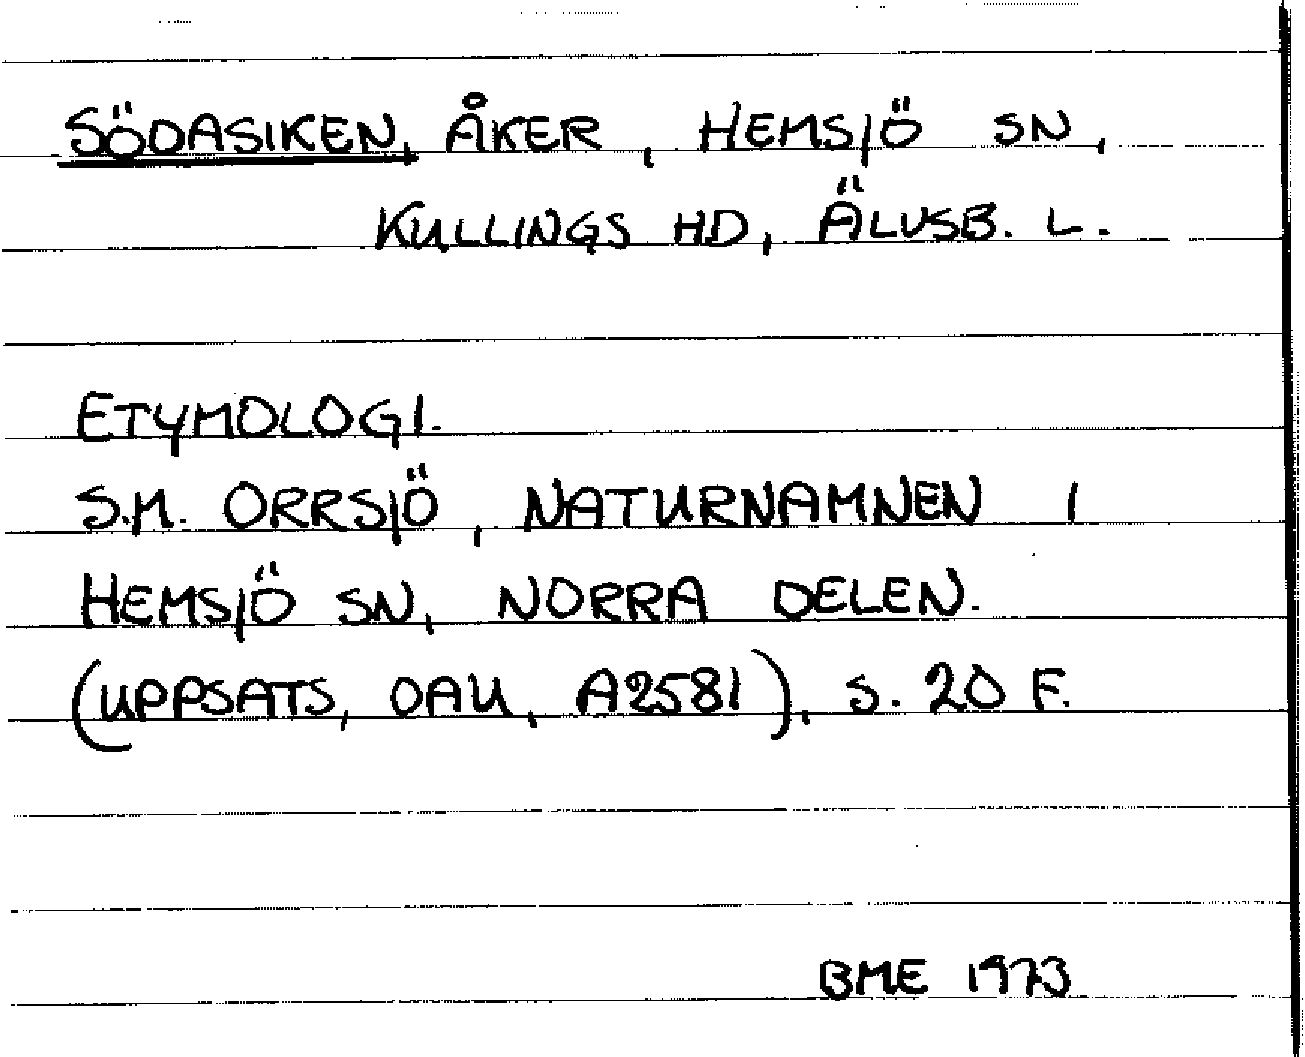 SÖDASIKEN, ÅKER, HEMSJÖ SN,
KULLINGS HD, ÄLVSB. L.
ETYMOLOGI.
S.M. ORRSJÖ, NATURNAMNEN I
HEMSJÖ SN, NORRA DELEN.
(UPPSATS, OAU, A2581), S. 20 F.
BME 1973